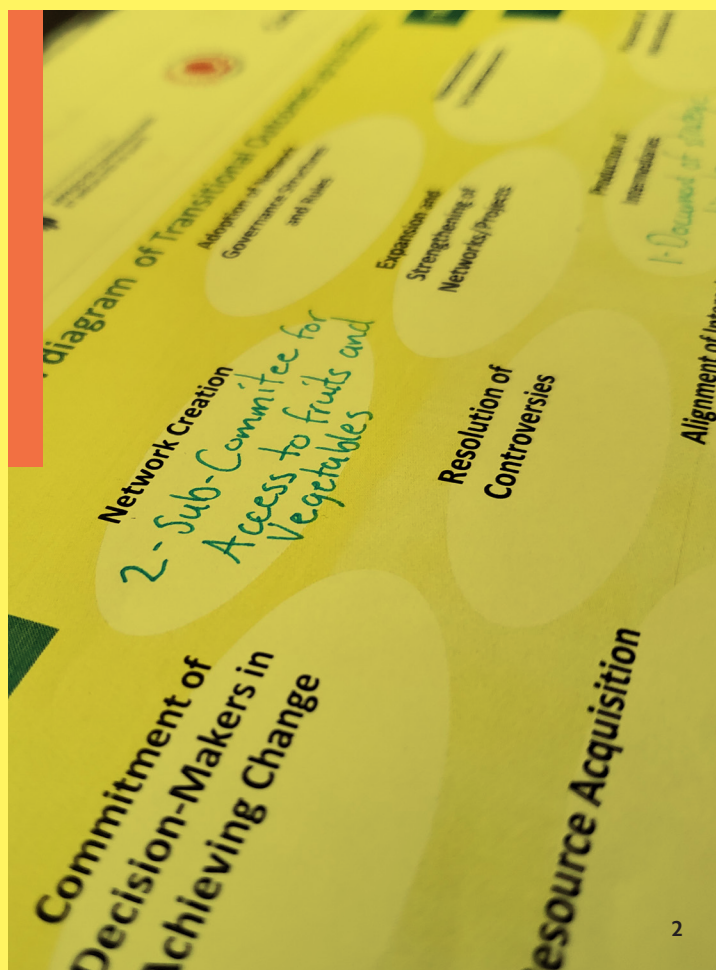 diagram of Transitional Outcomes
Adoption of Network
Governance Structures
and Rules
Expansion and
Strengthening of
Networks/Projects
Production of
Intermediaries
1- Document of
Network Creation
2- Sub-Commitee for
Access to fruits and
Vegetables
Resolution of
Controversies
Alignment of
Commitment of
Decision-Makers in
Achieving Change
Resource Acquisition
2